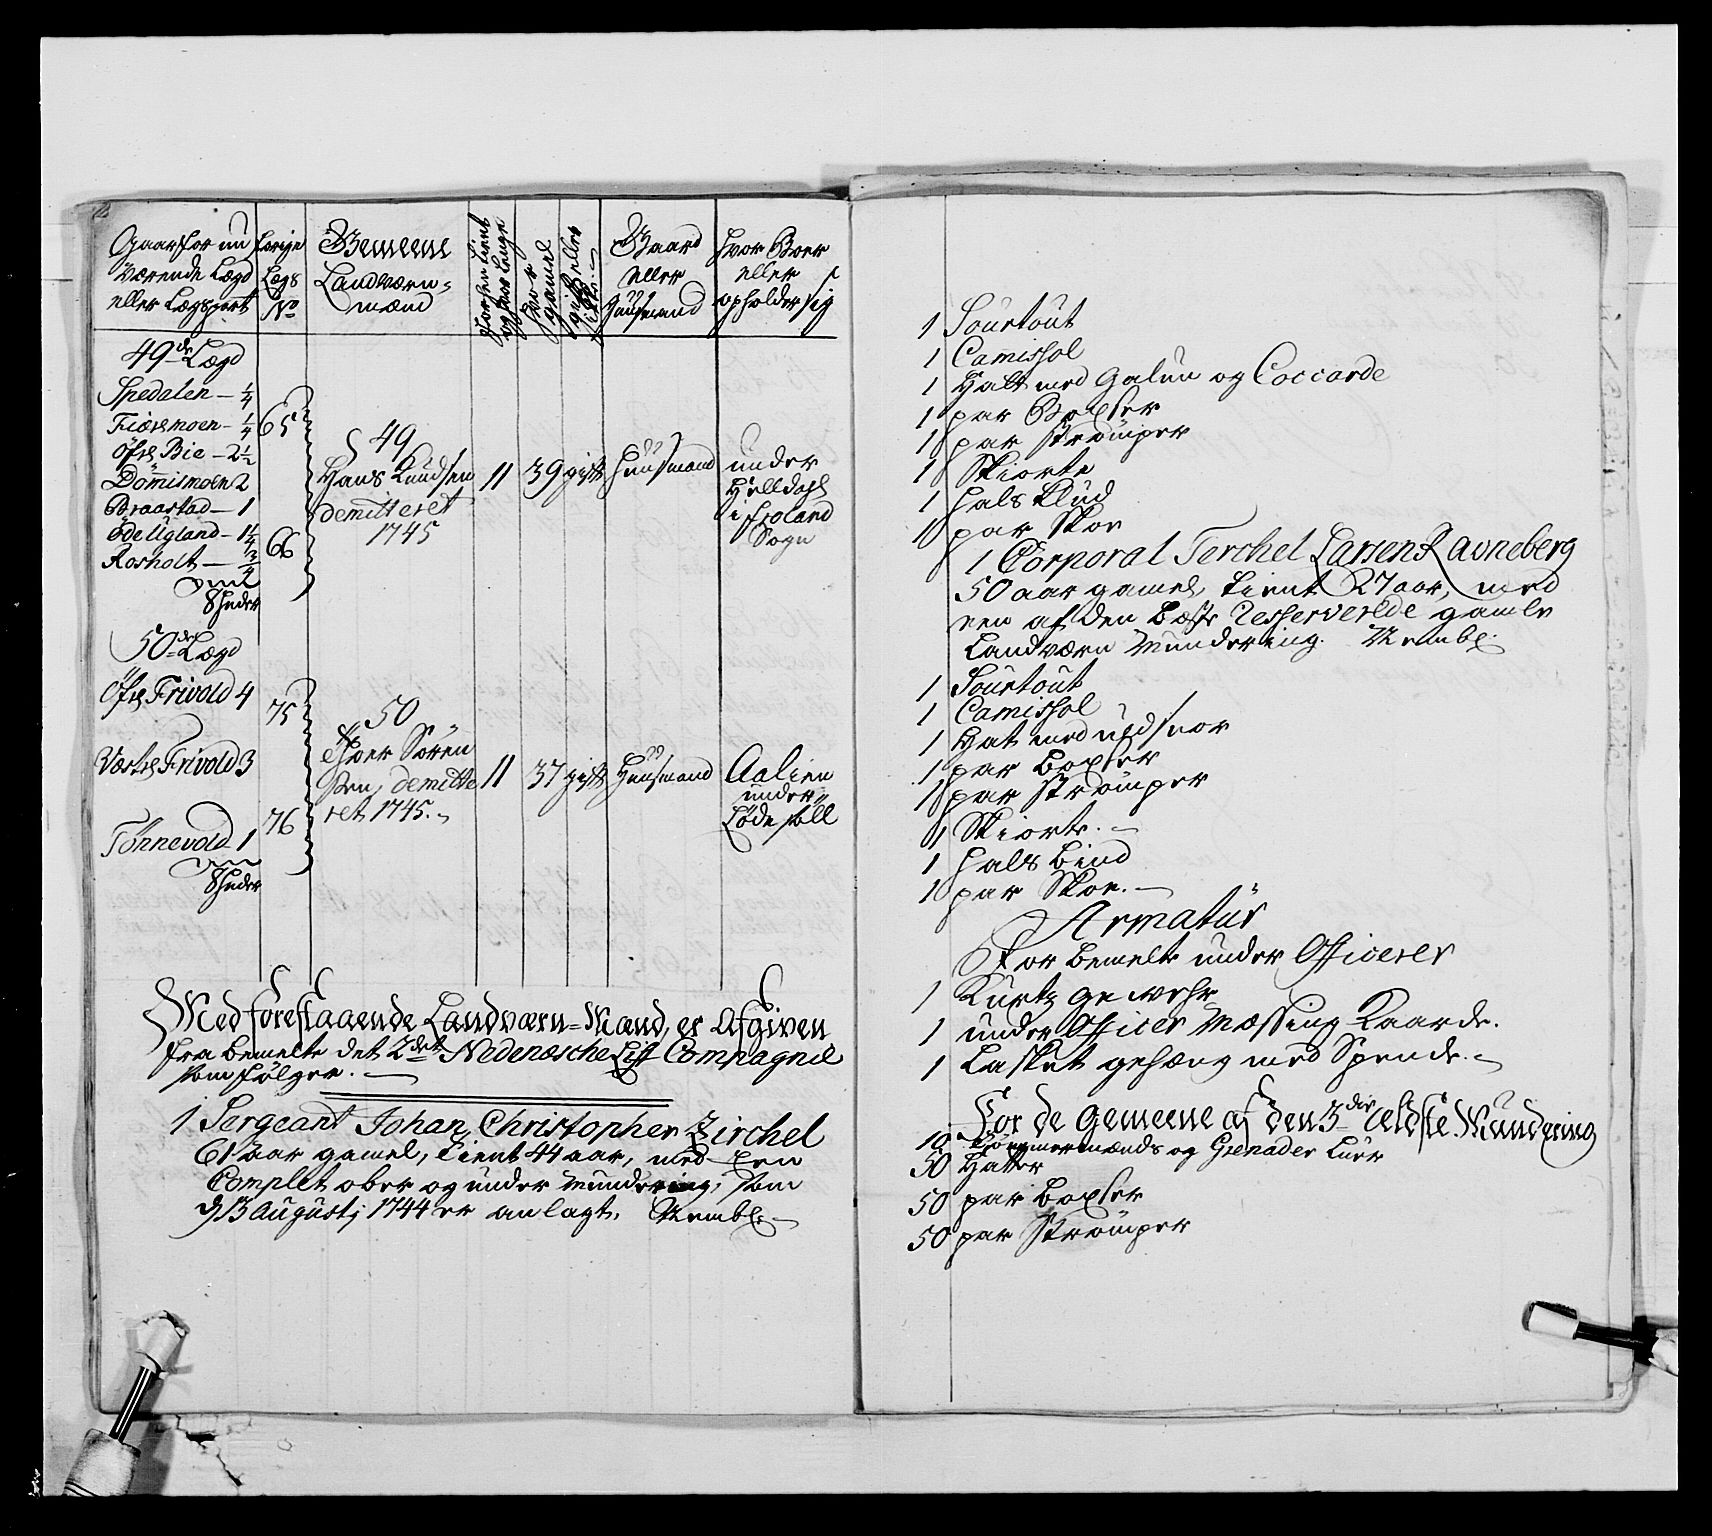 Gaarsfor nu
værende Lægd
eller Lægspart
forige
Legs
No
Gemeene
Landværn-
mænd
Hvor
gamel
gift eller
Gaard
eller
Huusmand
Hvor Boer
eller
opholder sig
49de Lægd
Spedalen - 1/4
Fiæremoen - 1/4
Öfre Bie - 2 1/2
Dommismoen 2
Braastad - 1
Öde Ugland - 1 1/4
Rosholt - 3/4
65
66
49
Hans Knudsen
demitteret
1745
11
39
gift
Huusmand
under
i Froland
Sogn
50de Lægd
Öfre Frivold 4
Vestre Frivold 3
Tonnevold 1
75
76
50
Sören
sen, demitte
ret 1745.
11
37
gift
Huusmand
Aalien
under
Med forestaaende Landværn-Mænd, er Afgiven
fra bemelte det 2det Nedenæsche Lif Compagnie
som følger.
1 Sergeant Johan Christopher Zirchel
61 aar gamel, tient 44 aar, med een
Complet ober og under mundering, som
d 13 Augusti 1744 er anlagt. Nembl.
1 Sourtout
1 Camissol
1 Hatt med Galun og Coccarde
1 par Boxser
1 par Strømper
1 Skiorte
1 Hals Klud
1 par Skoe
1 Corporal Terchel Larsen Ravneberg
50 aar gamel, tient 27 aar, med
een af den beste Resserverede gamle
Landværn Mundering. Nembl.
1 Sourtout
1 Camissol
1 Hat med uldsnor
1 par Boxser
1 par Strømper
1 Skiorte.
1 Hals bind
1 par Skoe.
Armatür
For bemelte under Officerer
1 Kurtz gewehr
1 under Officer Messing Kaarde.
1 Lasket gehæng med Spende.
For de Gemeene af den 3die ældste Mundering
10 Tømmermænds og Grenader Luer
50 Hatter
50 par boxser
50 par Strømper